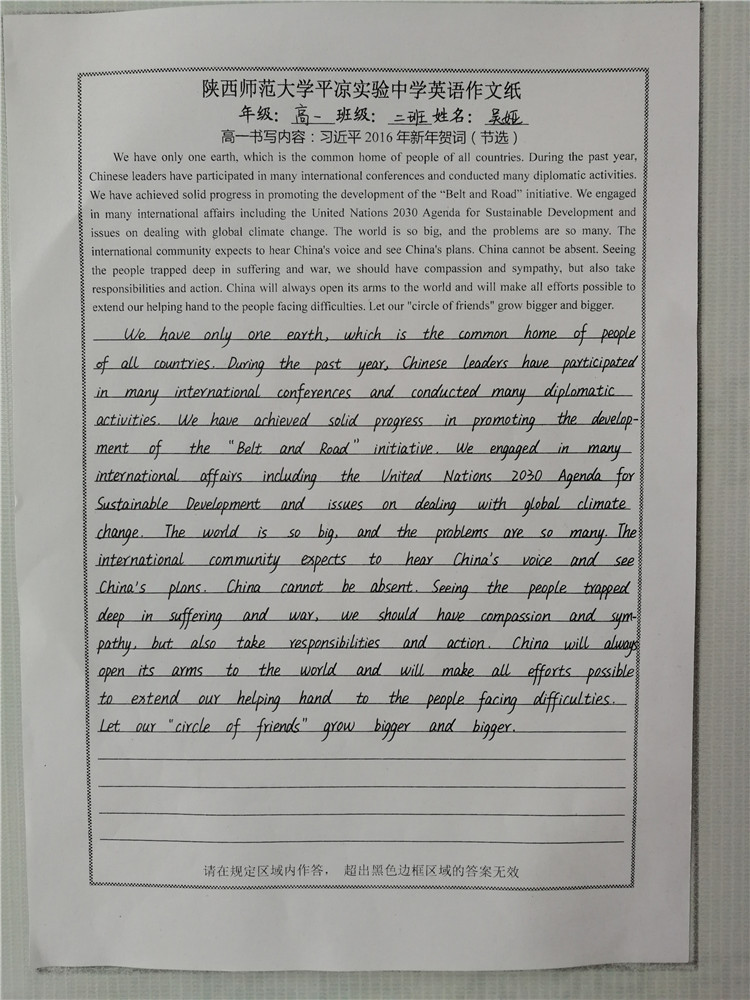 陕西师范大学平凉实验中学英语作文纸
年级：高一 班级：二班 姓名：吴娅
高一书写内容：习近平 2016 年新年贺词（节选）
We have only one earth, which is the common home of people of all countries. During the past year,
Chinese leaders have participated in many international conferences and conducted many diplomatic activities.
We have achieved solid progress in promoting the development of the “Belt and Road” initiative. We engaged
in many international affairs including the United Nations 2030 Agenda for Sustainable Development and
issues on dealing with global climate change. The world is so big, and the problems are so many. The
international community expects to hear China's voice and see China's plans. China cannot be absent. Seeing
the people trapped deep in suffering and war, we should have compassion and sympathy, but also take
responsibilities and action. China will always open its arms to the world and will make all efforts possible to
extend our helping hand to the people facing difficulties. Let our "circle of friends" grow bigger and bigger.
We have only one earth, which is the common home of people
of all countries. During the past year, Chinese leaders have participated
in many international conferences and conducted many diplomatic
activities. We have achieved solid progress in promoting the develop-
ment of the "Belt and Road" initiative. We engaged in many
international affairs including the United Nations 2030 Agenda for
Sustainable Development and issues on dealing with global climate
change. The world is so big, and the problems are so many. The
international community expects to hear China's voice and see
China's plans. China cannot be absent. Seeing the people trapped
deep in suffering and war, we should have compassion and sym-
pathy, but also take responsibilities and action. China will always
open its arms to the world and will make all efforts possible
to extend our helping hand to the people facing difficulties.
Let our "circle of friends" grow bigger and bigger.
请在规定区域内作答， 超出黑色边框区域的答案无效